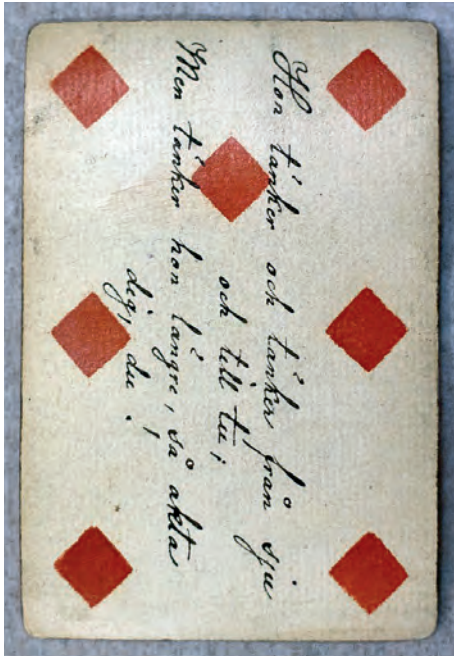 Hon tänker och tänker från sju
och till tu;
Men tänker hon längre, så akta
dig, du!